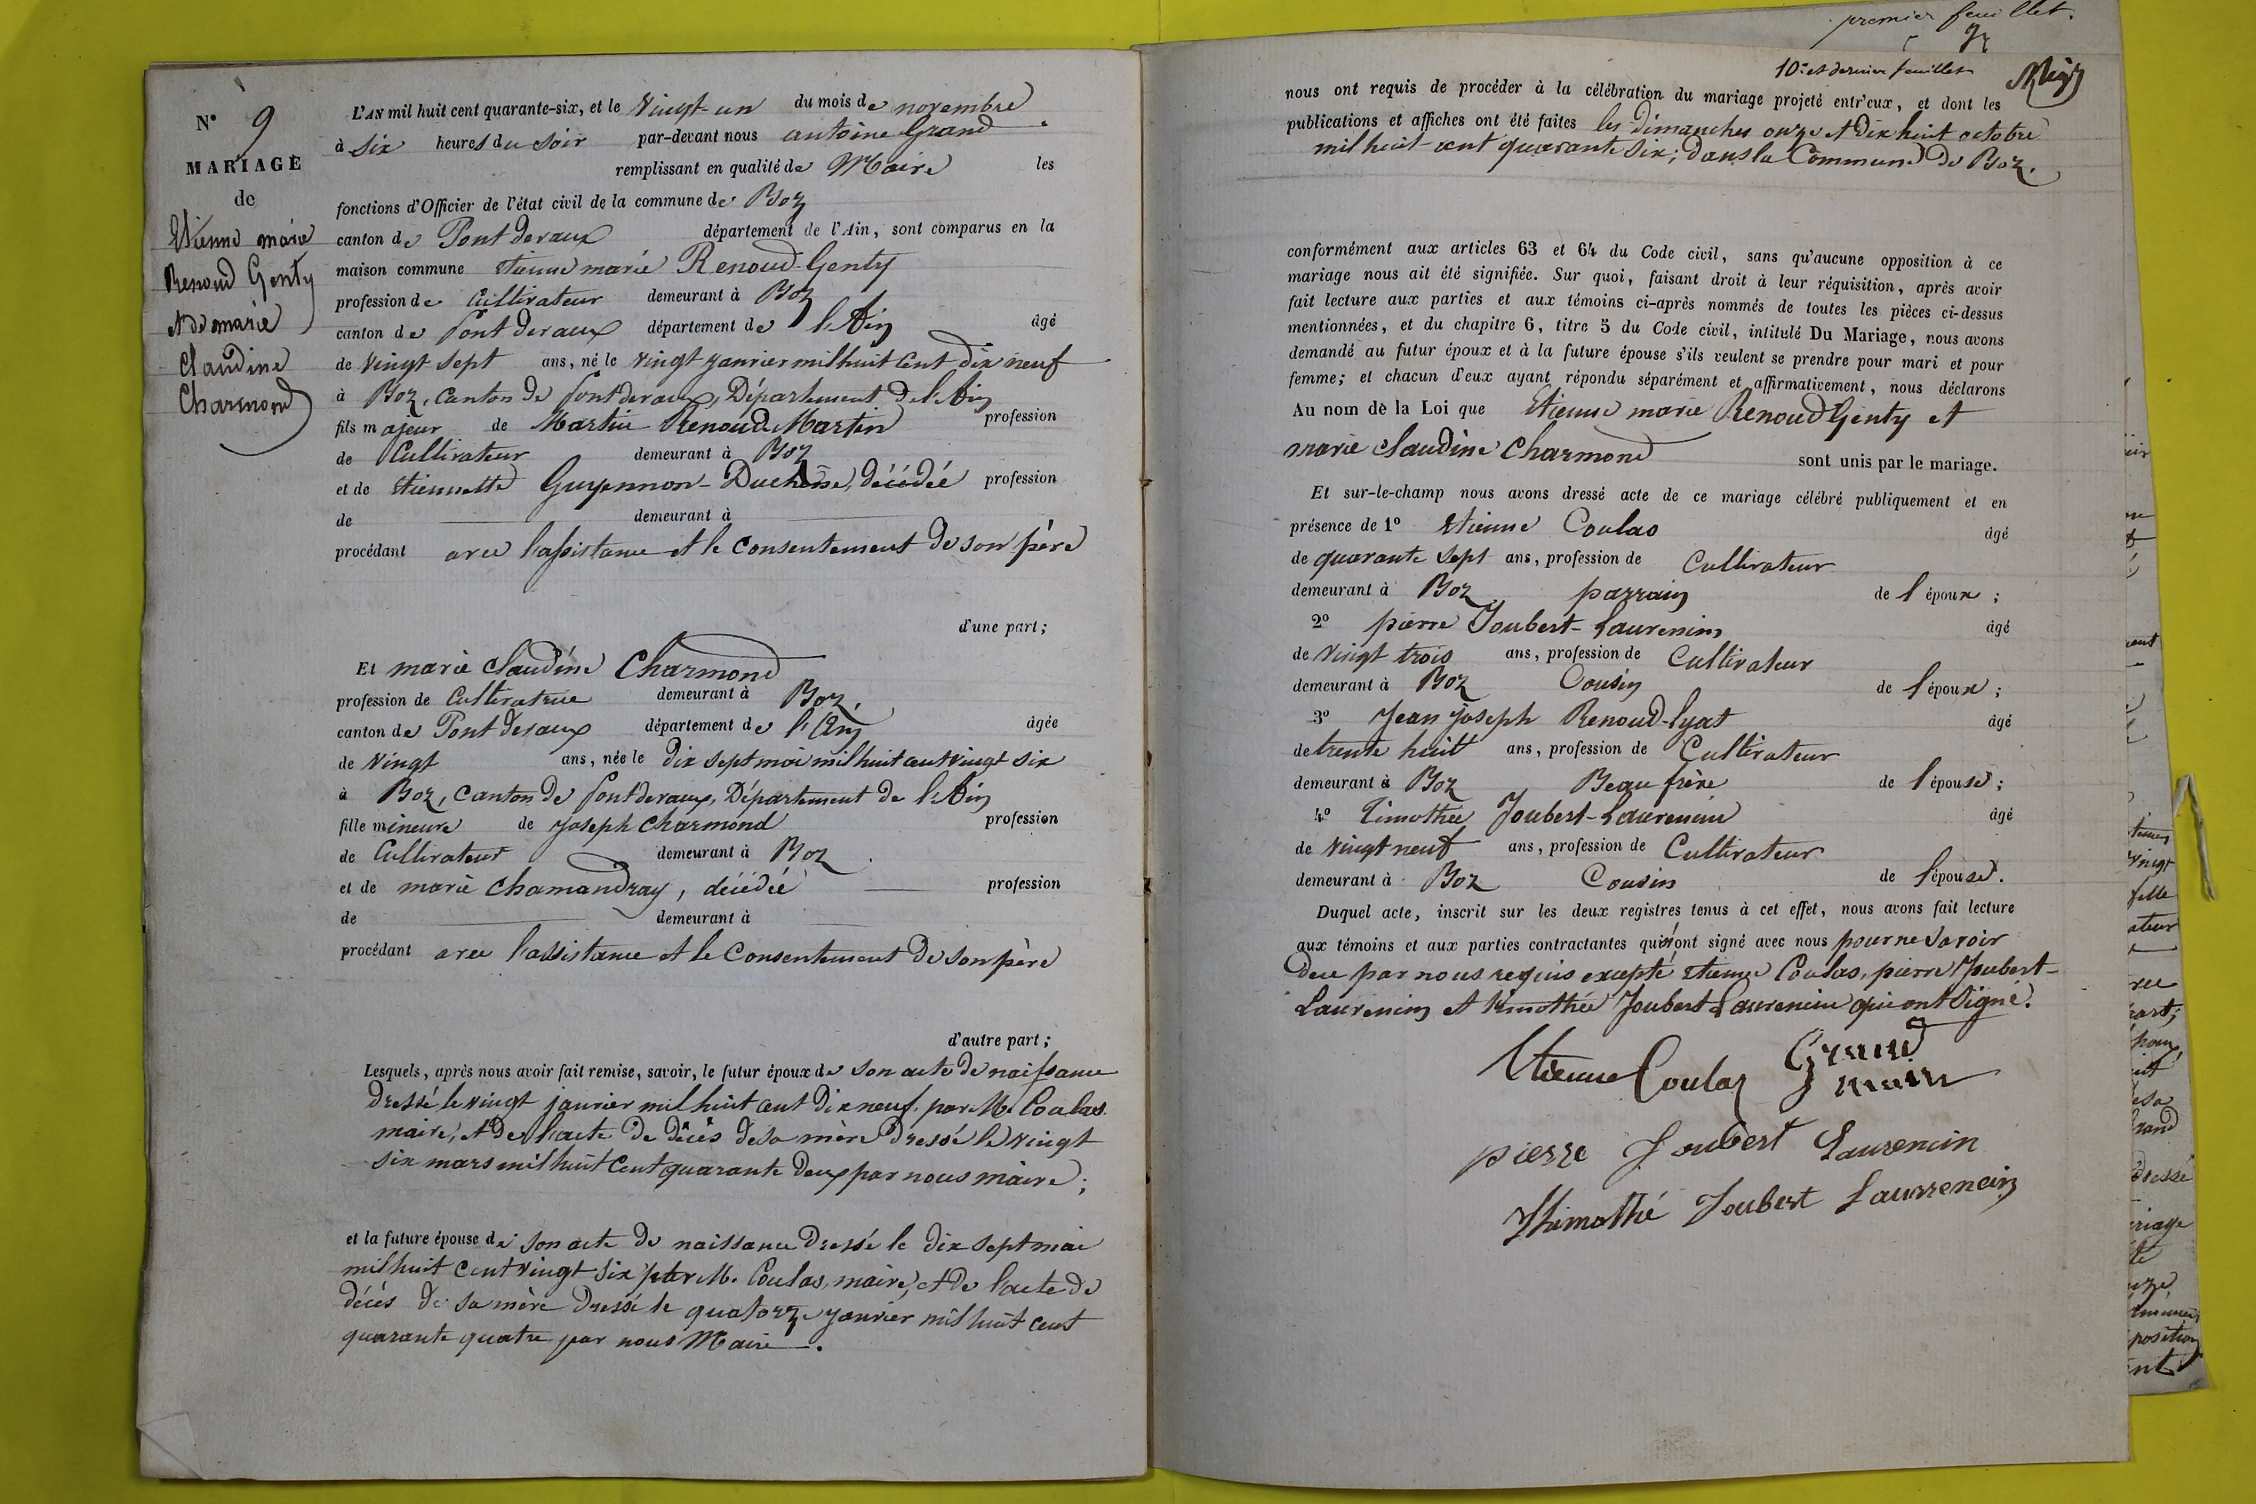 N° 9
MARIAGE
de
Etienne marie
Renoud Genty
et de marie
Claudine
Charmond
L'AN mil huit cent quarante-six, et le vingt-un du mois de novembre
à six heures du soir par-devant nous antoine Grand
remplissant en qualité de Maire les
fonctions d'Officier de l'état civil de la commune de Boz
canton de Pont devaux département de l'Ain, sont comparus en la
maison commune etienne marie Renoud-Genty
profession de Cultivateur demeurant à Boz
canton de Pont devaux département de l'Ain âgé
de vingt sept ans, né le vingt janvier mil huit cent dix neuf
à Boz, canton de Pont devaux, Département de l'Ain
fils majeur de Martin Renoud Martin profession
de Cultivateur demeurant à Boz
et de etiennette Guyennon-Duchêne, décédée profession
de demeurant à
procédant avec l'assistance et le consentement de son père
d'une part;
Et marie Claudine Charmond
profession de Cultivatrice demeurant à Boz,
canton de Pont devaux département de l'Ain âgée
de vingt ans, née le dix sept mai mil huit cent vingt six
à Boz, canton de Pont devaux, Département de l'Ain
fille mineure de Joseph Charmond profession
de Cultivateur demeurant à Boz
et de marie Chamandray, décédée profession
de demeurant à
procédant avec l'assistance et le consentement de son père
d'autre part;
Lesquels, après nous avoir fait remise, savoir, le futur époux de son acte de naissance
dressé le vingt janvier mil huit cent dix neuf par M. Coulas
maire, et de l'acte de décès de sa mère dressé le vingt
six mars mil huit cent quarante deux par nous maire;
et la future épouse de son acte de naissance dressé le dix sept mai
mil huit cent vingt six par M. Coulas, maire, et de l'acte de
décès de sa mère dressé le quatorze janvier mil huit cent
quarante quatre par nous Maire.
premier feuillet.
10e et dernier feuillet
nous ont requis de procéder à la célébration du mariage projeté entr'eux, et dont les
publications et affiches ont été faites les dimanches onze et dix huit octobre
mil huit cent quarante six; dans la Commune de Boz.
conformément aux articles 63 et 64 du Code civil, sans qu'aucune opposition à ce
mariage nous ait été signifiée. Sur quoi, faisant droit à leur réquisition, après avoir
fait lecture aux parties et aux témoins ci-après nommés de toutes les pièces ci-dessus
mentionnées, et du chapitre 6, titre 5 du Code civil, intitulé Du Mariage, nous avons
demandé au futur époux et à la future épouse s'ils veulent se prendre pour mari et pour
femme; et chacun d'eux ayant répondu séparément et affirmativement, nous déclarons
Au nom de la Loi que Etienne marie Renoud Genty et
marie Claudine Charmond sont unis par le mariage.
Et sur-le-champ nous avons dressé acte de ce mariage célébré publiquement et en
présence de 1° Etienne Coulas âgé
de quarante sept ans, profession de Cultivateur
demeurant à Boz parrain de l'époux;
2° pierre Joubert-Laurencin âgé
de vingt trois ans, profession de Cultivateur
demeurant à Boz Cousin de l'époux;
3° Jean joseph Renoud-lyat âgé
de trente huit ans, profession de Cultivateur
demeurant à Boz Beau frère de l'épouse;
4° Timothée Joubert-Laurencin âgé
de vingt neuf ans, profession de Cultivateur
demeurant à Boz Cousin de l'épouse.
Duquel acte, inscrit sur les deux registres tenus à cet effet, nous avons fait lecture
aux témoins et aux parties contractantes qui n'ont signé avec nous pour ne savoir
de ce par nous requis excepté etienne Coulas, pierre Joubert-
Laurencin et timothée Joubert Laurencin qui ont signé.
Etienne Coulas Grand
maire
pierre Joubert Laurencin
Thimothé Joubert Laurrencin